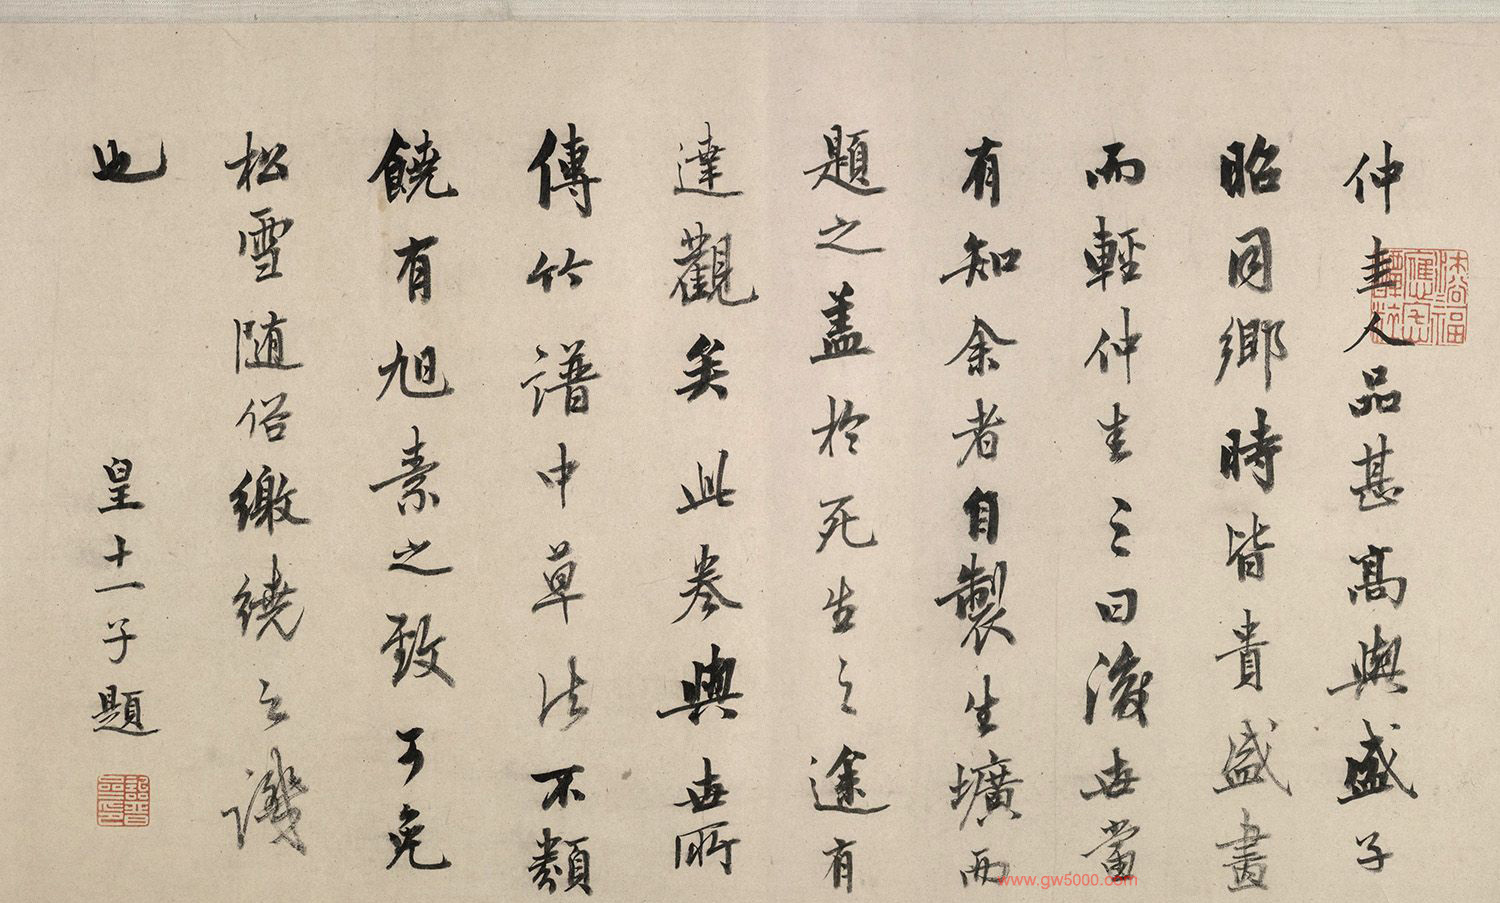 仲圭人品甚高與盛子
昭同鄉時皆貴盛畫
而輕仲圭圭曰後世當
有知余者自製生壙而
題之蓋於死生之途有
達觀矣此卷與世所
傳竹譜中草法不類
饒有旭素之致可免
松雪隨俗繳繞之譏
也
皇十一子題
www.gw5000.com